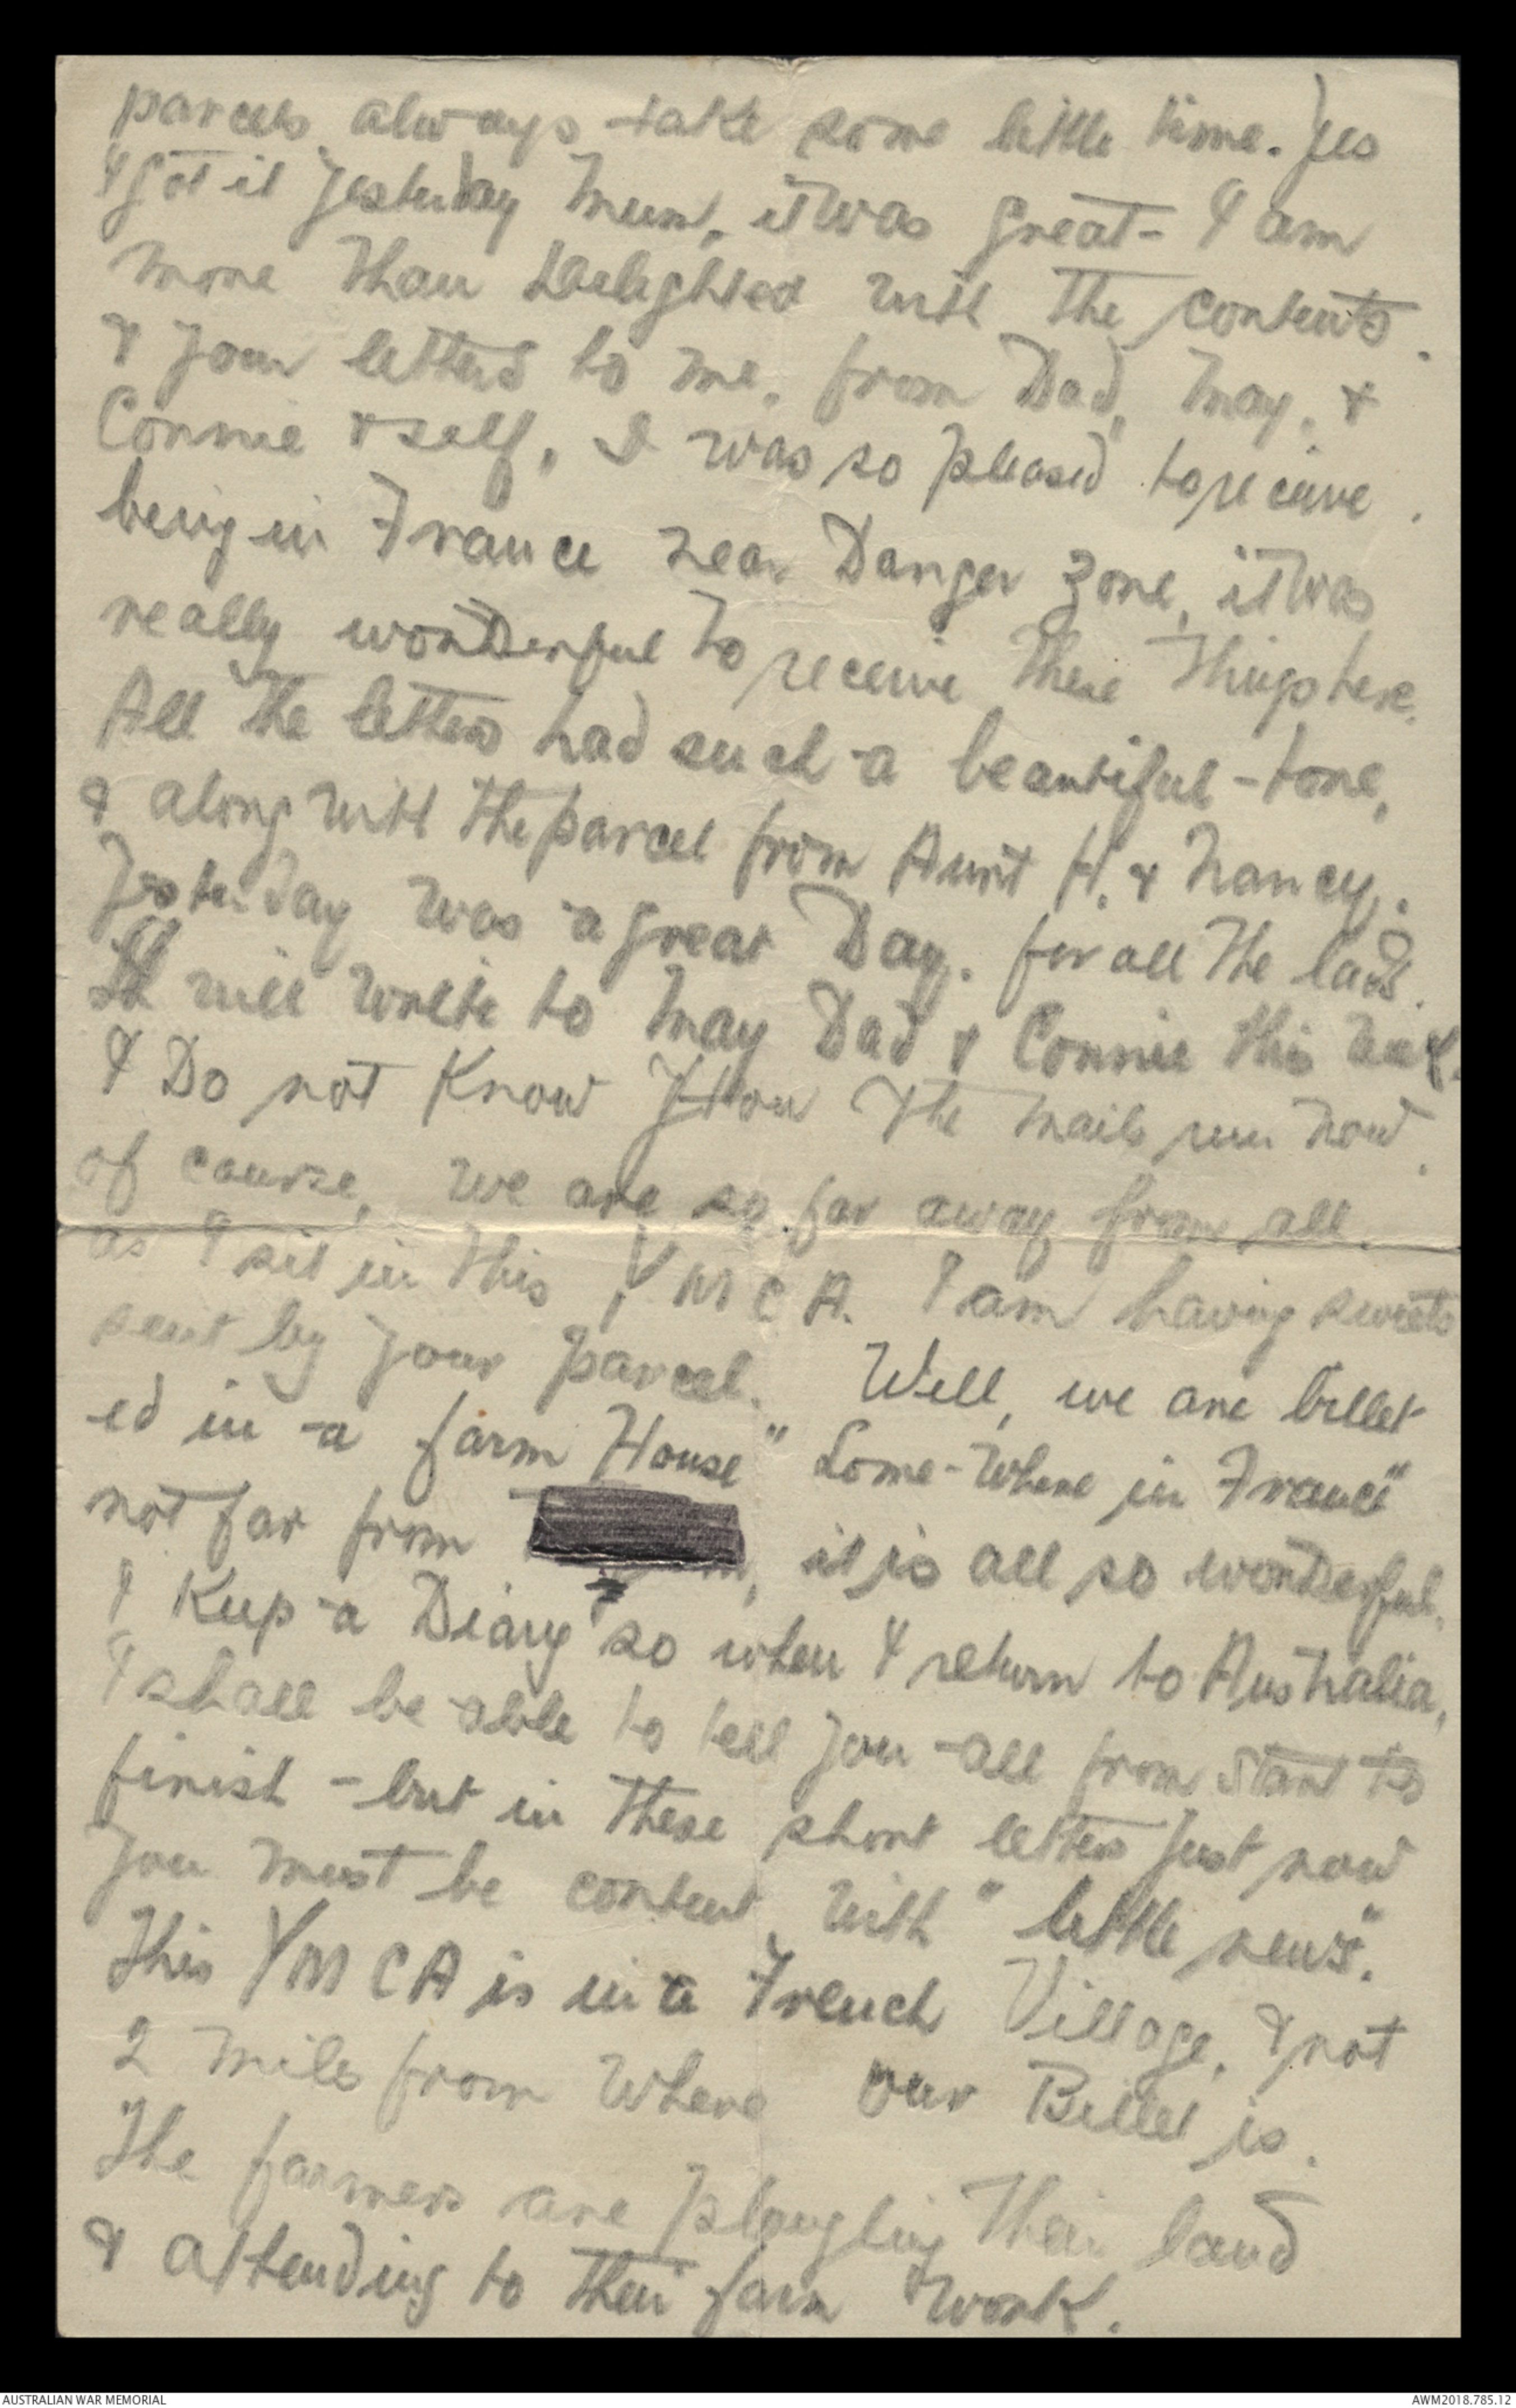 parcels always take some little time. Yes
I got it yesterday Mum, it was great - I am
more than delighted with the contents.
& your letters to me, from Dad, May, &
Connie & self, I was so pleased to receive.
being in France near Danger zone, it was
really wonderful to receive these things here.
All the letters had such a beautiful - tone,
& along with the parcel from Aunt H. & Nancy.
Yesterday was a great Day. for all the lads.
I will write to May Dad & Connie this week.
I Do not Know How the mails run now.
of course, we are so far away from all.
as I sit in this Y M C A. I am having sweets
sent by your parcel. Well, we are billet-
ed in a farm House "Some-Where in France"
not far from , it is all so wonderful.
I Keep a Diary so when I return to Australia,
I shall be able to tell you all from start to
finish - but in these short letters just now
you must be content with "little news".
This YMCA is in a French Village, & not
2 miles from where our Billet is.
The farmers are ploughing their land
& attending to their farm work.
AUSTRALIAN WAR MEMORIAL
AWM2018.785.12